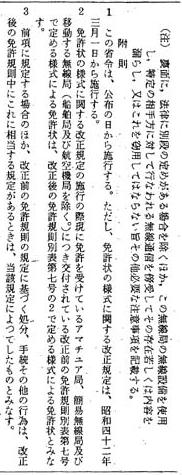 （注）裏面に、法律に別段の定めがある場合を除くほか、この無線局の無線設備を使用
し、特定の相手方に対して行なわれる無線通信を傍受してその存在若しくは内容を
漏らし、又はこれを窃用してはならない旨その他必要な注意事項を記載する。
附　則
１　この省令は、公布の日から施行する。ただし、免許状の様式に関する改正規定は、昭和四十二年
三月一日から施行する。
２　免許状の様式に関する改正規定の施行の際現に免許を受けているアマチュア局、簡易無線局及び
移動する無線局（船舶局及び航空機局を除く。）につき交付されている改正前の免許規則別表第七号
で定める様式による免許状は、改正後の免許規則別表第七号の２で定める様式による免許状とみな
す。
３　前項に規定する場合のほか、改正前の免許規則の規定に基づく処分、手続その他の行為は、改正
後の免許規則中にこれに相当する規定があるときは、当該規定によつてしたものとみなす。